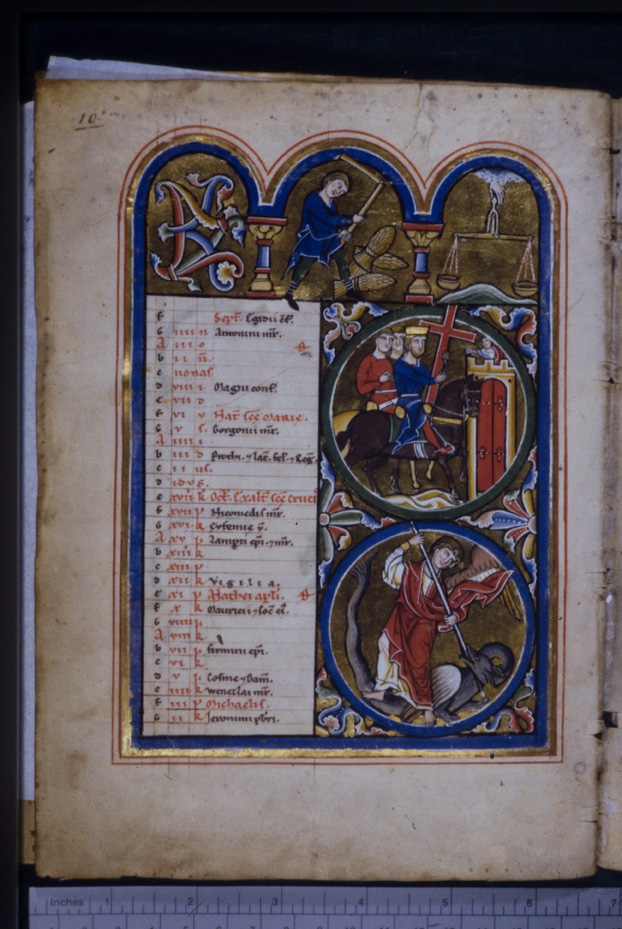 10.
KL
f Sept. Egidii
G iiii n Antonini mr̄.
A iii o
b ii n̄.
c nonas
d viii i Magni conf.
e vii d
f vi v Nat̄ sc̄e Marie.
G v s. Gorgonii mr̄.
A iiii i
b iii d Prothi. ⁊ Iac̄.
c ii us.
d idus.
e xviii k Oct. Exalt̄ sc̄e cruci
f xvii p Nicomedis mr̄.
G xvi k Eufemie v̄.
A xv p Lampti ep̄i. ⁊ mr̄.
b xiiii k
c xiii p
d xii k Vigilia.
e xi p Mathei apl̄i.
f x k Mauricii ⁊ soc̄ ei.
G viiii p
A viii k
b vii p firmini ep̄i.
c vi k
d v p Cosme ⁊ Dam̄.
e iiii k Wenezlai mr̄.
f iii p Michaelis.
G ii k Ieronimi pbr̄i.
Inches 1 2 3 4 5 6 7